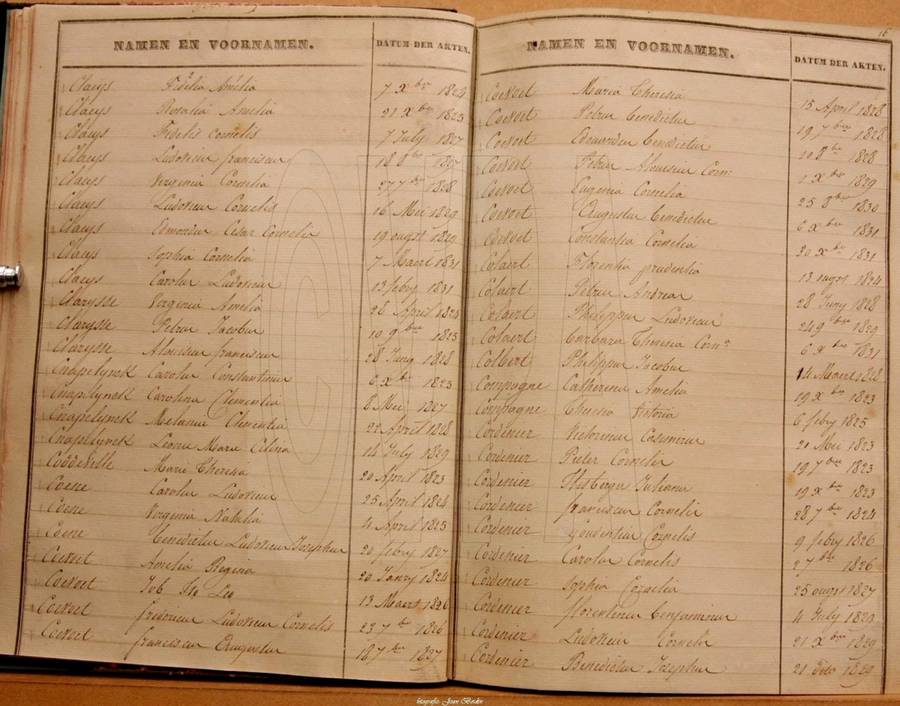 NAMEN EN VOORNAMEN. DATUM DER AKTEN.
Claeys Fidelia Amelia 7 Xber 1824
Claeys Rosalia Amelia 21 Xber 1825
Claeys Fidelis Cornelis 7 July 1827
Claeys Ludovicus franciscus 18 8ber 1827
Claeys Virginia Cornelia 27 7ber 1828
Claeys Ludovicus Cornelis 16 Mei 1829
Claeys Edmondus Cesar Cornelis 19 augst 1829
Claeys Sophia Cornelia 7 Maert 1831
Claeys Carolus Ludovicus 13 feby 1831
Clarysse Virginia Amelia 28 April 1824
Clarysse Petrus Jacobus 19 9ber 1825
Clarysse Alouisius franciscus 28 Juny 1828
Cnapelynck Carolus Constantinus 6 Xber 1823
Cnapelynck Carolina Clementia 8 Mei 1827
Cnapelynck Melania Clementia 22 April 1828
Cnapelynck Leonie Marie Celina 14 July 1829
Coddeville Marie Theresia 20 April 1823
Coene Carolus Ludovicus 25 April 1824
Coene Virginia Nathalia 4 April 1825
Coene Benedictus Ludovicus Josephus 20 feby 1827
Coevoet Amelia Regina 20 Janry 1824
Coevoet Leo 13 Maert 1826
Coevoet fredericus Ludovicus Cornelis 23 7ber 1826
Coevoet franciscus Augustus 18 7ber 1827
16
NAMEN EN VOORNAMEN. DATUM DER AKTEN.
Coevoet Maria Theresia 15 April 1828
Coevoet Petrus Benedictus 19 7ber 1828
Coevoet Edouardus Benedictus 20 8ber 1828
Coevoet Petrus Aloiusius Corns 1 Xber 1829
Coevoet Eugenia Cornelia 25 8ber 1830
Coevoet Augustus Benedictus 6 Xber 1831
Coevoet Constantia Cornelia 20 Xber 1831
Colaert Florentia prudentia 13 augst 1824
Colaert Petrus Andreas 28 Juny 1828
Colaert Philippus Ludovicus 24 9ber 1829
Colaert Barbara Theresia Corna 6 Xber 1831
Colbert Philippus Jacobus 14 Maert 1828
Compagne Catherina Amelia 19 Xber 1823
Compagne Theresia Victoria 6 feby 1825
Cordenier Victorinus Casimirus 21 Mei 1823
Cordenier Pieter Cornelis 19 7ber 1823
Cordenier Juliana 19 Xber 1823
Cordenier franciscus Cornelis 28 7ber 1824
Cordenier Gaudentius Cornelis 9 feby 1826
Cordenier Carolus Cornelis 27 7ber 1826
Cordenier Sophia Cornelia 25 augst 1827
Cordenier florentinus Benjaminus 4 July 1829
Cordenier Ludovicus Cornelis 21 Xber 1829
Cordenier Benedictus Josephus 21 dito 1829
fotografie: Joan Bosdev